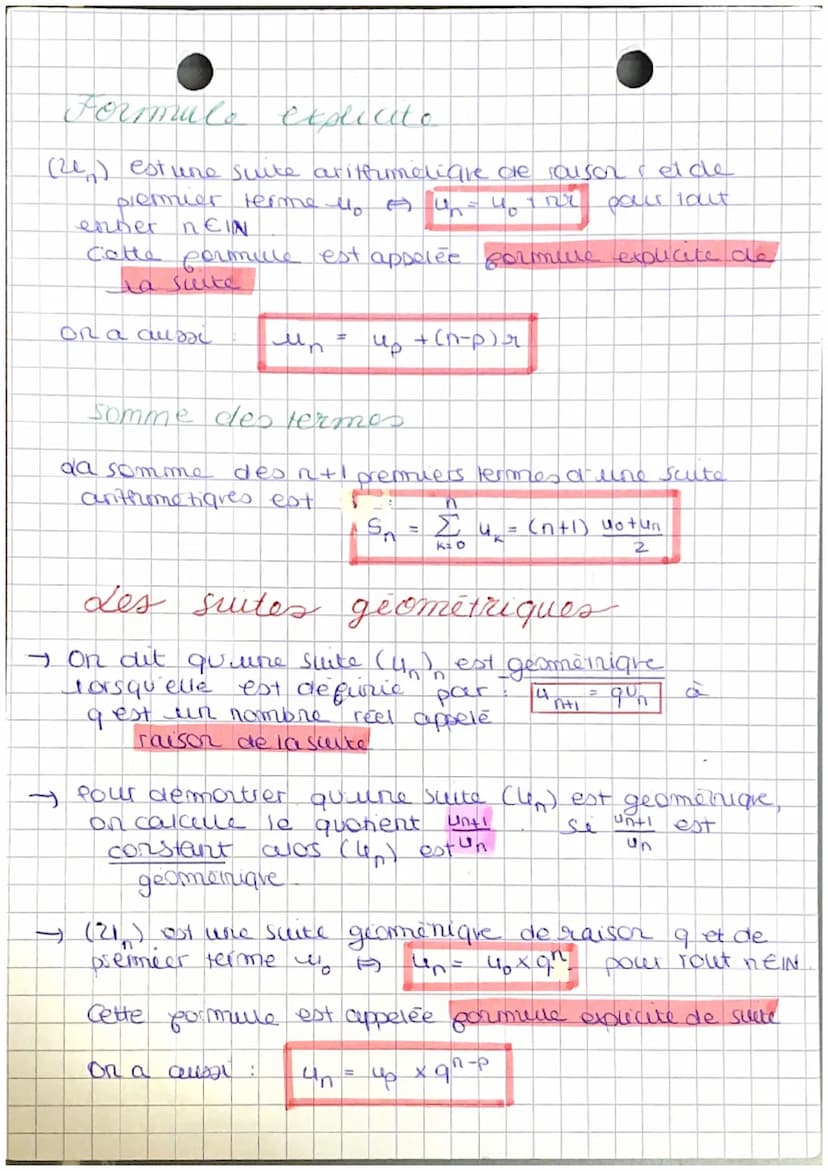 Formule explicite
(Un) est une suite arithmétique de raison r et de
premier terme u₀ ⇔ uₙ = u₀ + nr pour tout
entier n∈ℕ
Cette formule est appelée formule explicite de
la suite
on a aussi : uₙ = uₚ + (n-p) r
somme des termes
La somme des n+1 premiers termes d'une suite
arithmétiques est
Sₙ = n∑k=0 uₖ = (n+1) (u₀+uₙ)/2
Les suites géométriques
→ On dit qu'une suite (uₙ)ₙ est géométrique
lorsqu'elle est définie par : uₙ₊₁ = quₙ à
q est un nombre réel appelé
raison de la suite
→ Pour démontrer qu'une suite (uₙ) est géométrique,
on calcule le quotient uₙ₊₁/uₙ . Si uₙ₊₁/uₙ est
constant alos (uₙ) est
géométrique
→ (Uₙ) est une suite géométrique de raison q et de
premier terme u₀ ⇔ uₙ = u₀ × qⁿ pour tout n∈ℕ
Cette formule est appelée formule explicite de suite
On a aussi : uₙ = uₚ × qⁿ⁻ᵖ